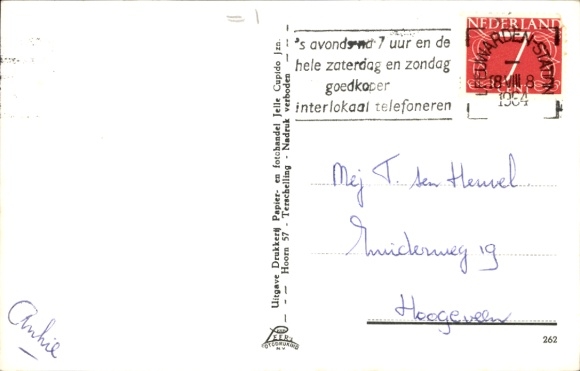 's avonds na 7 uur en de
hele zaterdag en zondag
goedkoper
interlokaal telefoneren
NEDERLAND
7
CENT
LEEUWARDEN-STATION
18 VIII 8
1964
Uitgave Drukkerij Papier- en fotohandel Jelle Cupido Jzn.
Hoorn 57 - Terschelling - Nadruk verboden
Mej T. ten Heuvel
19
Hoogeveen
Anhie
FOTODRUKDIO
N.V.
262